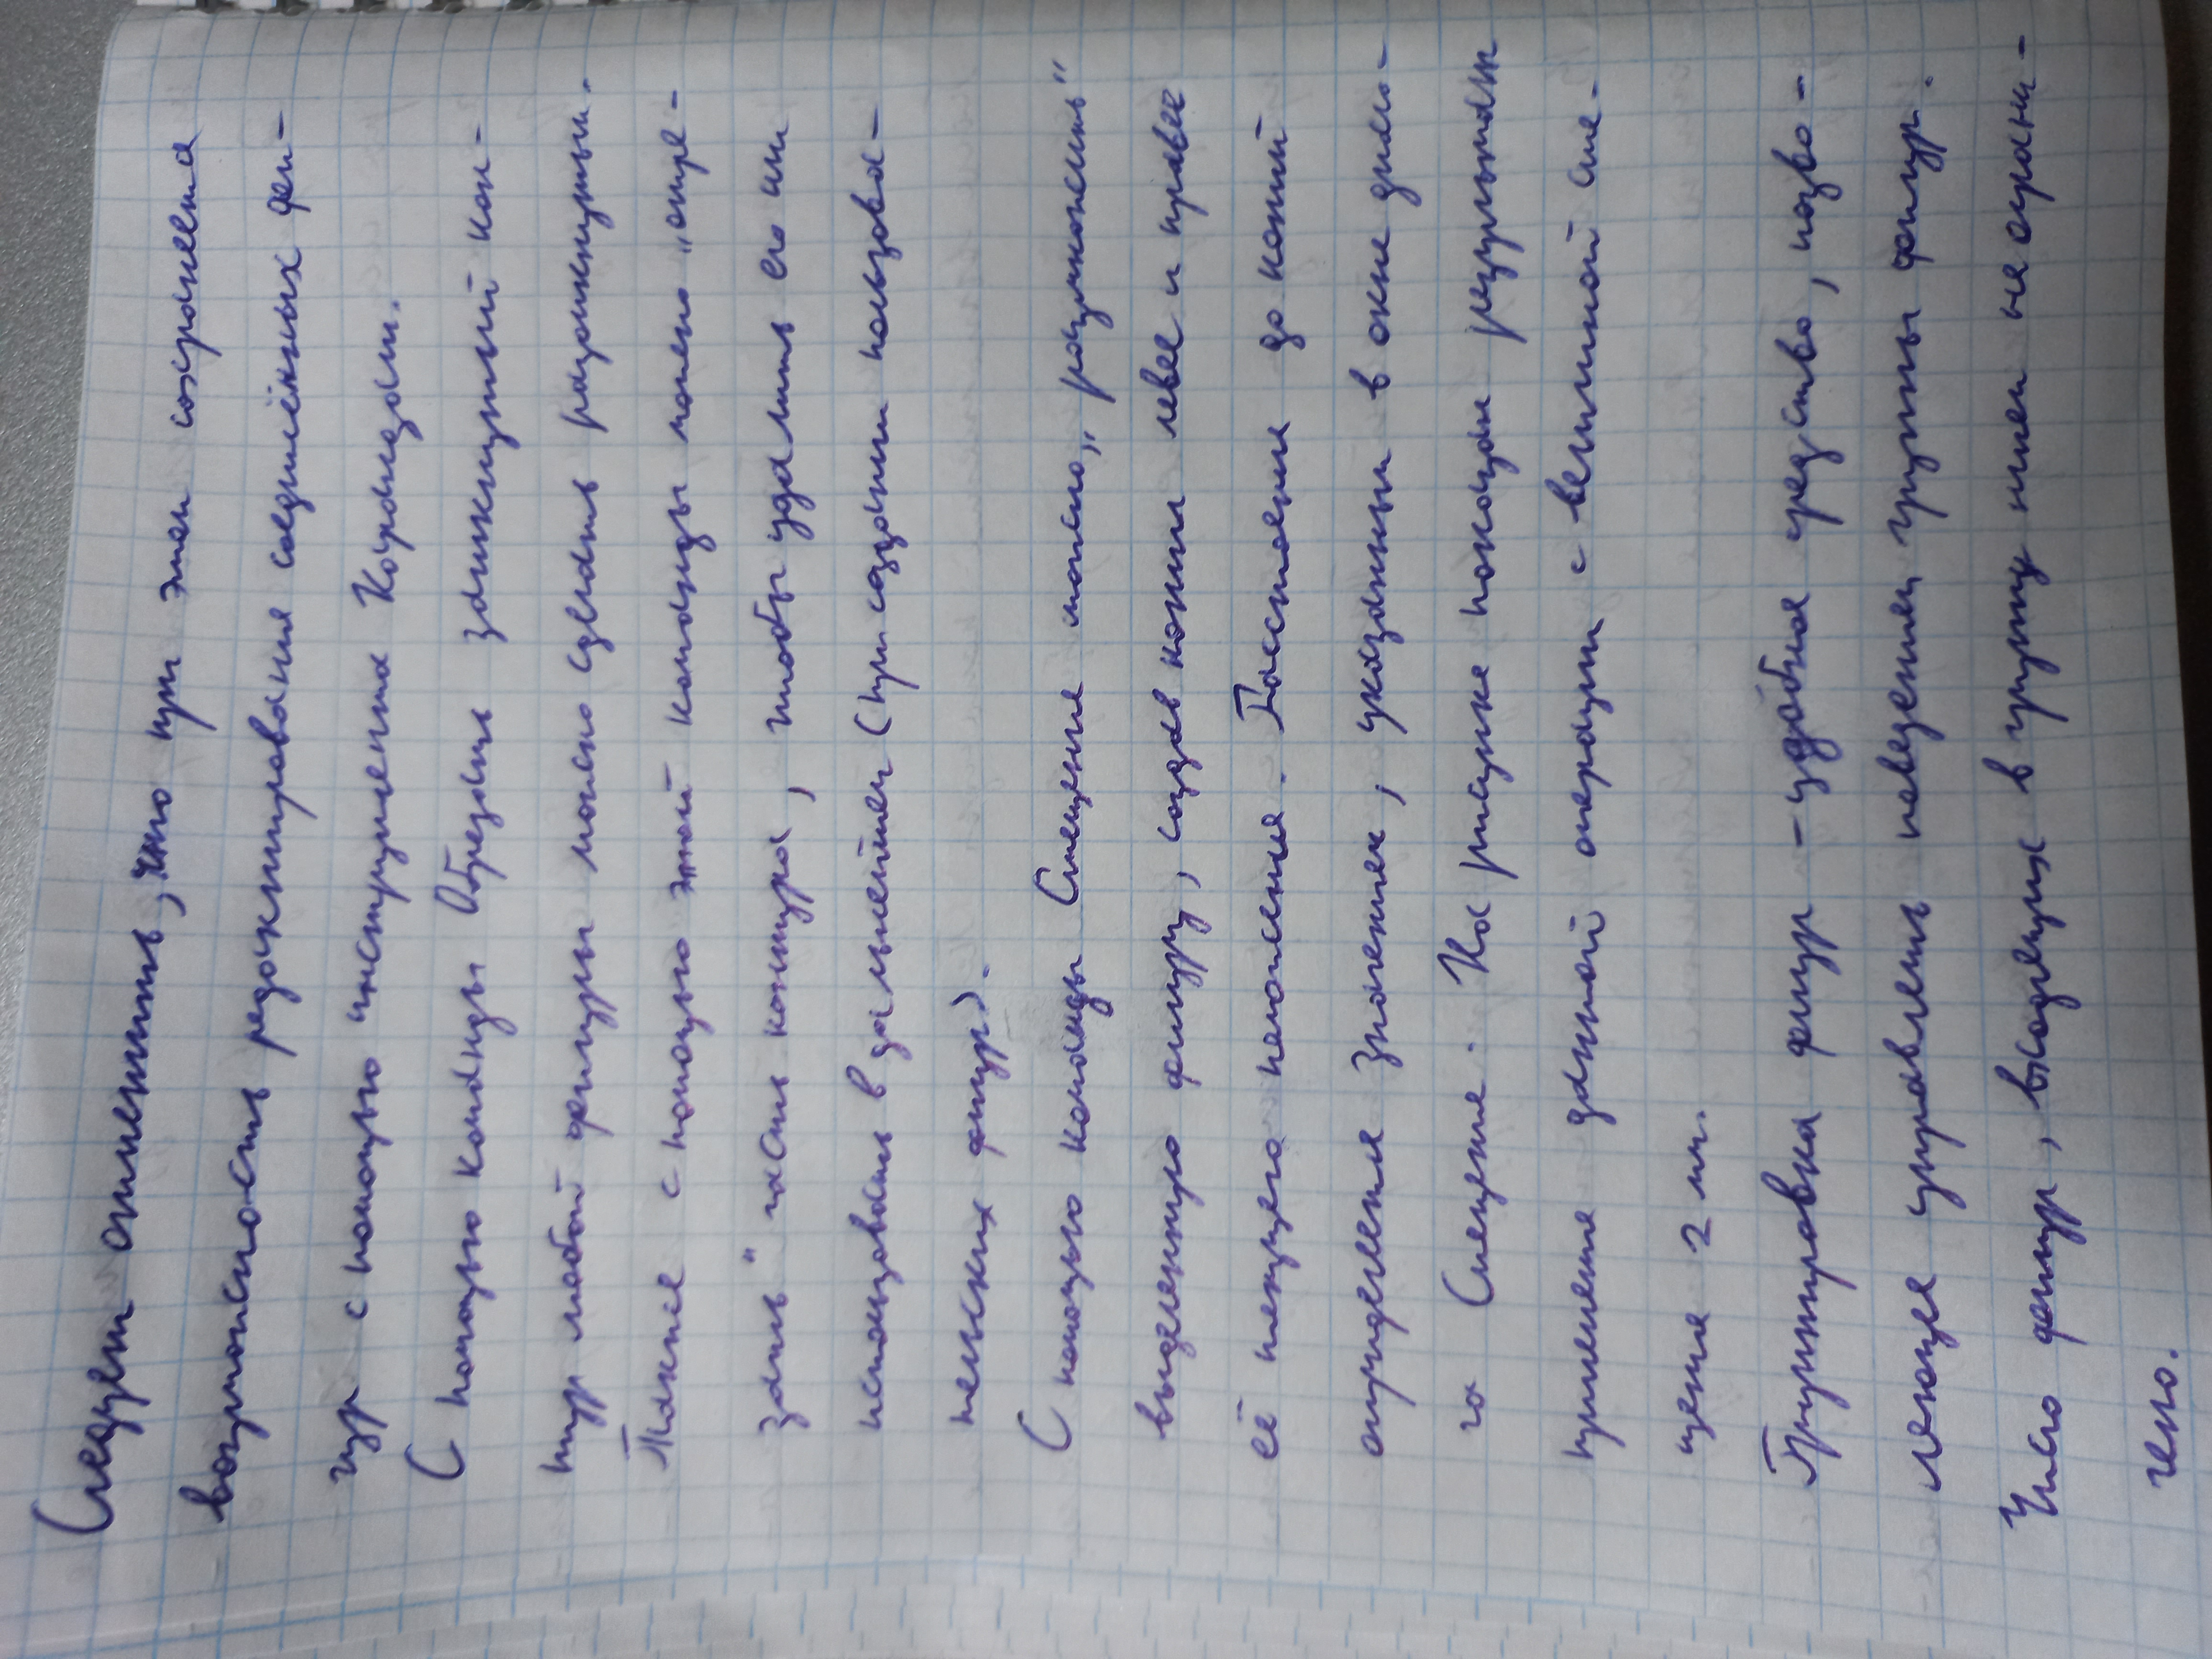 Следует отметить, что при этом сохранена
возможность редактирования соединённых фи-
гур с помощью инструмента Карандаш.
С помощью команды Обрезать замкнутый кон-
тур любой фигуры можно сделать разомкнутым.
Также с помощью этой команды можно „отре-
зать" часть контура, чтобы удалить его или
использовать в дальнейшем (при создании
нескольких фигур).
С помощью команды Смещение можно „размножить"
выделенную фигуру, создав копии левее и правее
её текущего положения. Расстояние до копий
определяем значением, указанным в окне диало-
га Смещение. На рисунке показан результат
применения данной операции с величиной сме-
щения 2 мм.
Группировка фигур - удобное средство, позво-
ляющее управлять поведением группы фигур.
Число фигур, входящих в группу ничем не ограни-
чено.